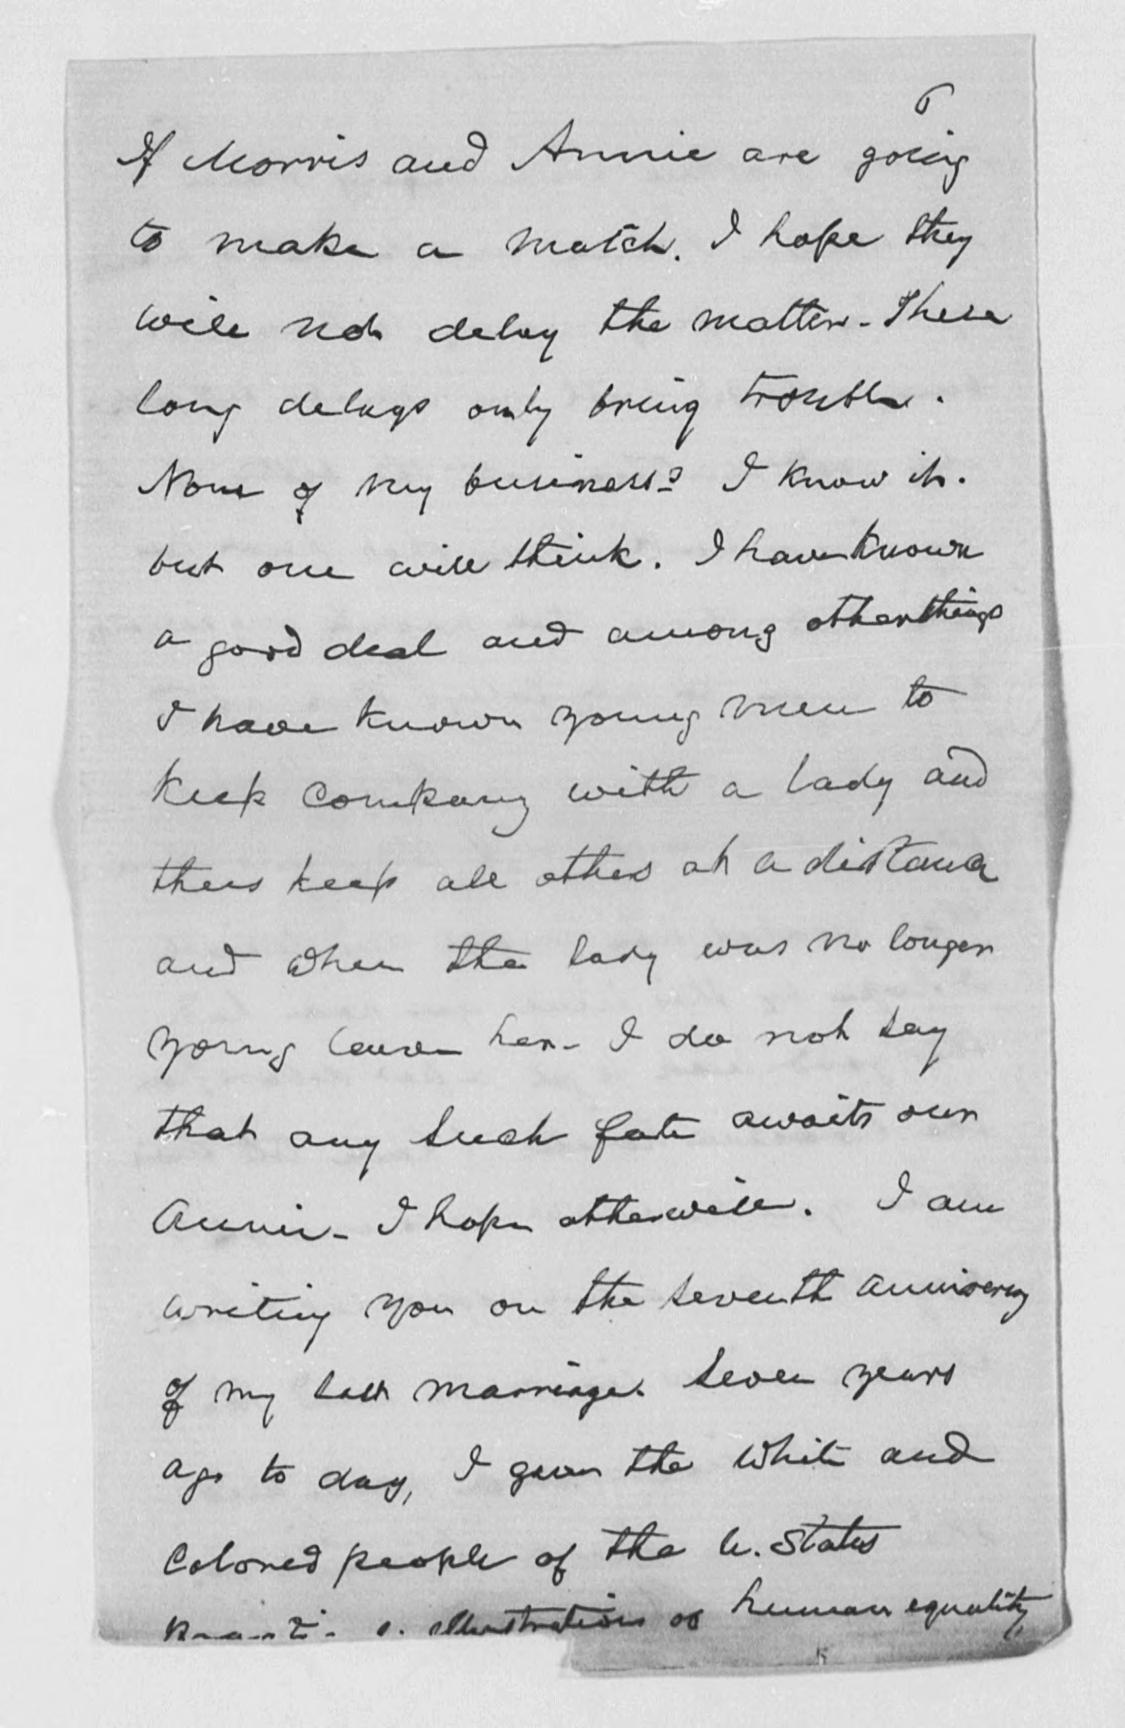 6
If Morris and Annie are going
to make a match. I hope they
will not delay the matter - These
long delays only bring trouble.
None of my business? I know it.
but one will think. I have known
a good deal and among other things
I have known young men to
keep company with a lady and
thus keep all others at a distance
and when the lady was no longer
young leave her - I do not say
that any such fate awaits our
Annie - I hope otherwise. I am
writing you on the seventh anniversary
of my last marriage. Seven years
ago to day, I gave the white and
Colored people of the U. States
illustration of human equality